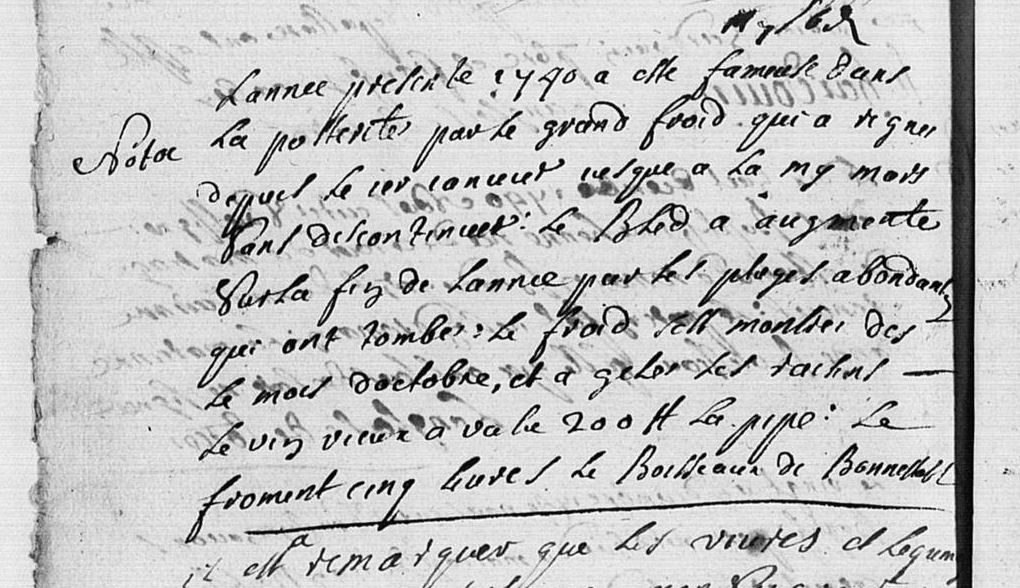 Lannee presente 1740 a este fameuse dans
Nota
La posterité par le grand froid qui a regné
depuis le 1er ianuier iusque a la my mars
sans discontinuer : le bled a augmenté
sur la fin de lannee par les pluyes abondantes
qui ont tombés : le froid sest montré des
le mois doctobre, et a gelé les raisins
le vin vieux a valu 200 tt la pipe : Le
froment cinq liures le Boisseaux de Bonnestable
il est a remarquer que les viures et legum